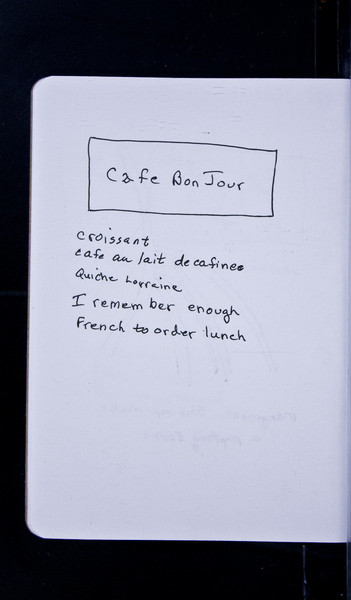 Cafe Bon Jour
croissant
cafe au lait decafinee
Quiche Lorraine
I remember enough
French to order lunch